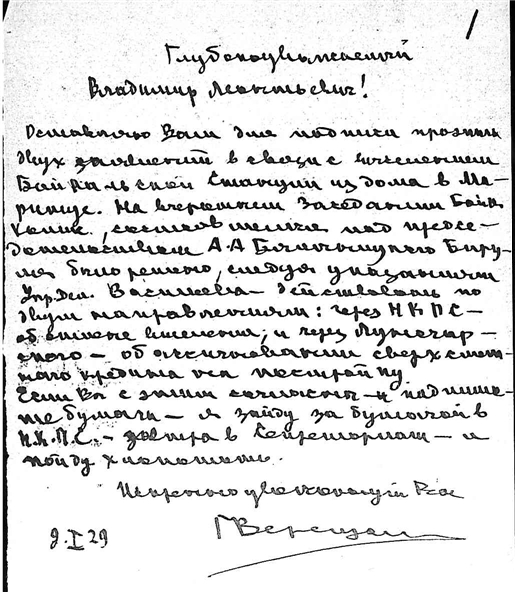 1
Глубокоуважаемый
Владимир Леонтьевич!
Оставляю Вам для подписи проэкты
двух заявлений в связи с выселением
Байкальской Станции из дома в Ма-
ритуе. На вчерашнем заседании Байк.
Комис., состоявшемся под предсе-
дательством А.А Бялыницкого Биру-
ля было решено, следуя указаниям
Упр.Дел. Васильева - действовать по
двум направлениям: через Н К П С -
об отмене выселения; и через Луначар-
ского - об ассигновании сверхсмет-
ного кредита на постройку
Если Вы с этим согласны - и подпише-
те бумаги - я зайду за бумагой в
Н.К.П.С. - завтра в Секретариат - и
пойду хлопотать.
Искренно уважающий Вас
ГВерещаг
9.I 29